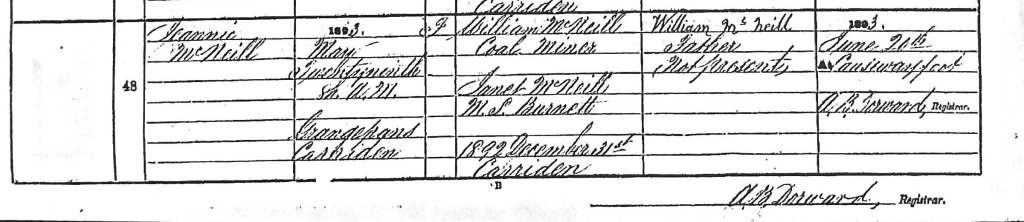 Carriden
Jeannie 1893. F William McNeill William McNeill 1893.
McNeill May Coal Miner Father June 20th
(Not present) Causewayfoot
5h. A.M. Janet McNeill
48 M.S. Burnett A. B. Dorward, Registrar.
Grangepans
Carriden 1892 December 31st
Carriden
B
A. B. Dorward, Registrar.